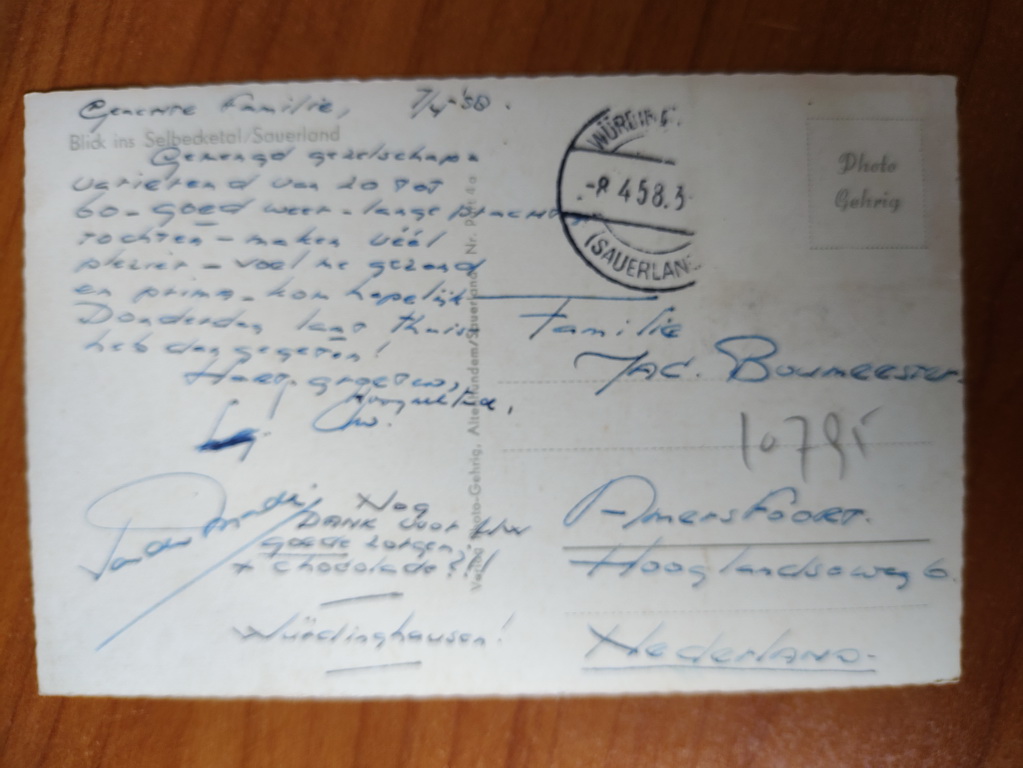 Geachte Familie, 7/4-'58.
Blick ins Selbecketal/Sauerland
Gemengd gezelschap
varierend van 20 tot
60 - goed weer - lange
tochten - maken véél
plezier - voel me gezond
en prima - kom hopelijk
Donderdag laat thuis
heb dan gegeten!
Hart. groeten,
Nog
DANK voor Uw
goede zorgen.
+ chocolade?!!
Würdinghausen!
WÜRDINGH
-8.4.58.
(SAUERLAND
Photo
Gehrig
Familie
Jac. Boumeester.
10795
Amersfoort.
Hooglandseweg 6.
Nederland.
Photo-Gehrig, Altenhundem/Sauerland Nr.